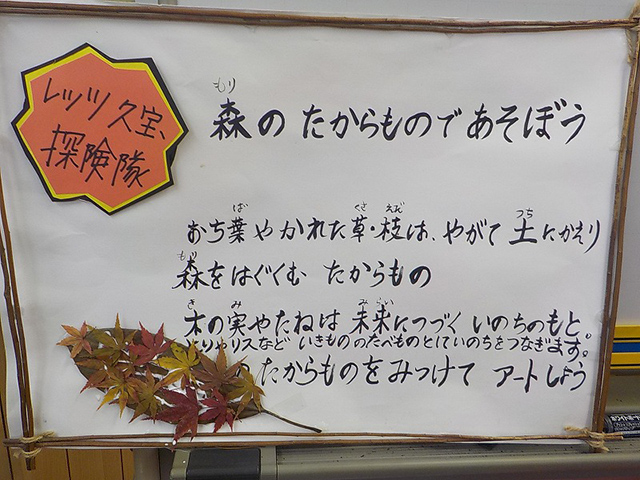 レッツ久宝、
探険隊
もり
森のたからものであそぼう
ば くさ えだ つち
おち葉やかれた草・枝は、やがて土にかえり
もり
森をはぐくむ たからもの
き み みらい
木の実やたねは 未来につづく いのちのもと。
とりやリスなど いきもののたべものとしていのちをつなぎます。
のたからものをみつけて アートしよう